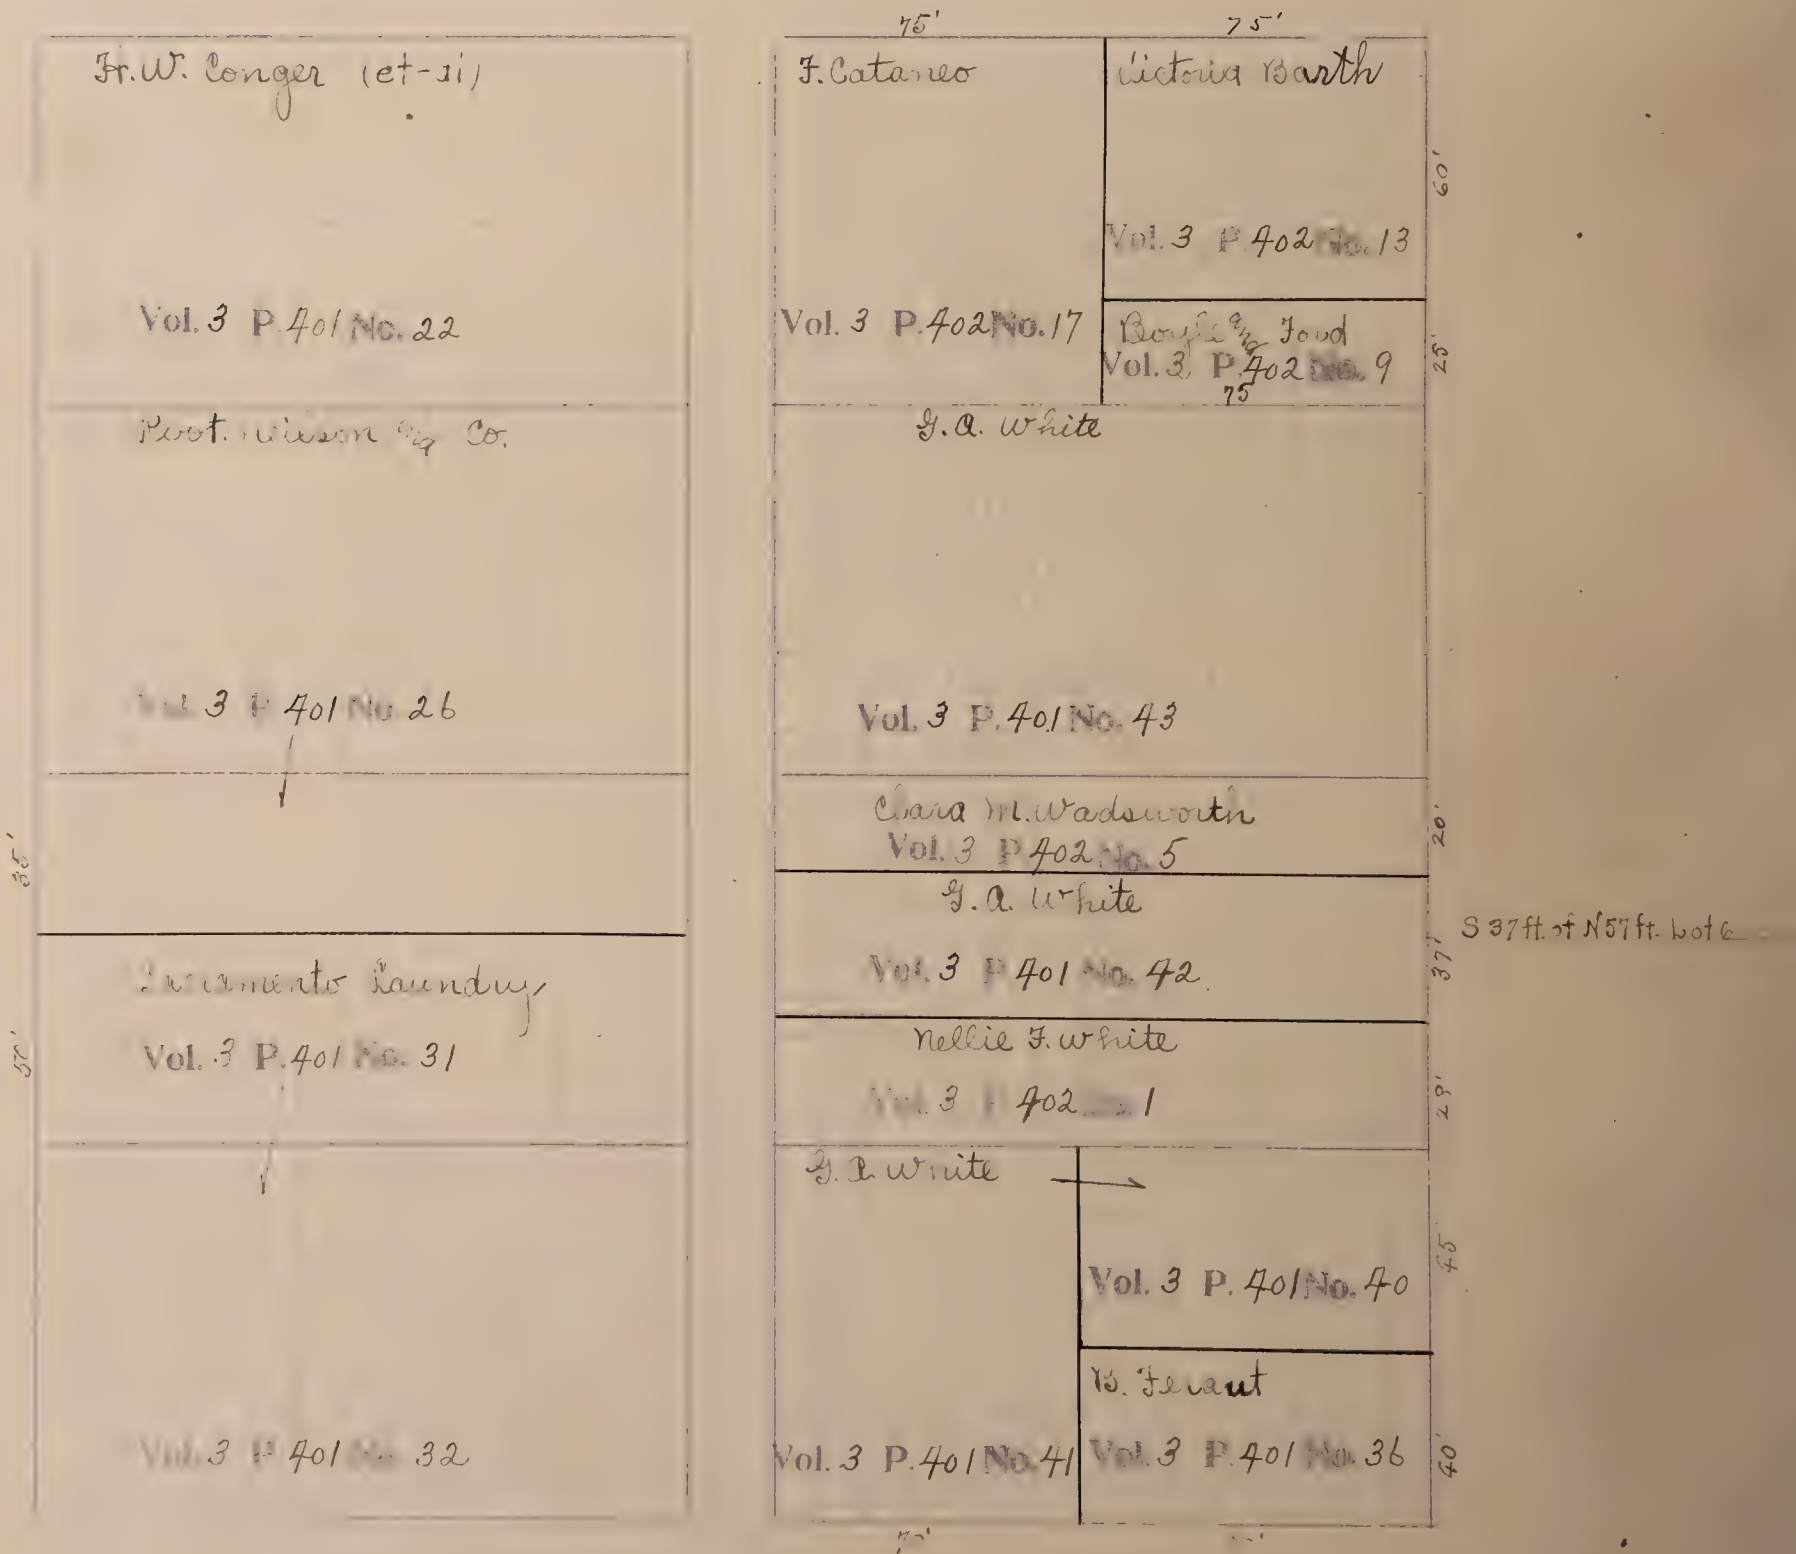 Fr. W. Conger (et-al)
Vol. 3 P. 401 No. 22
Wilson and Co.
Vol. 3 P. 401 No. 26
35'
50'
Sacramento Laundry
Vol. 3 P. 401 No. 31
Vol. 3 P. 401 No. 32
75' 75'
F. Cataneo
Vol. 3 P. 402 No. 17
Victoria Barth
60'
Vol. 3 P. 402 No. 13
Boyle and Foud
25'
Vol. 3 P. 402 No. 9
75
G. A. White
Vol. 3 P. 401 No. 43
Clara M. Wadsworth
20'
Vol. 3 P. 402 No. 5
G. A. White
S 37 ft. of N 57 ft. Lot 6
37'
Vol. 3 P. 401 No. 42
Nellie F. White
29'
Vol. 3 P. 402 No. 1
G. A. White
45'
Vol. 3 P. 401 No. 40
B. Feraut
Vol. 3 P. 401 No. 41
Vol. 3 P. 401 No. 36
40'